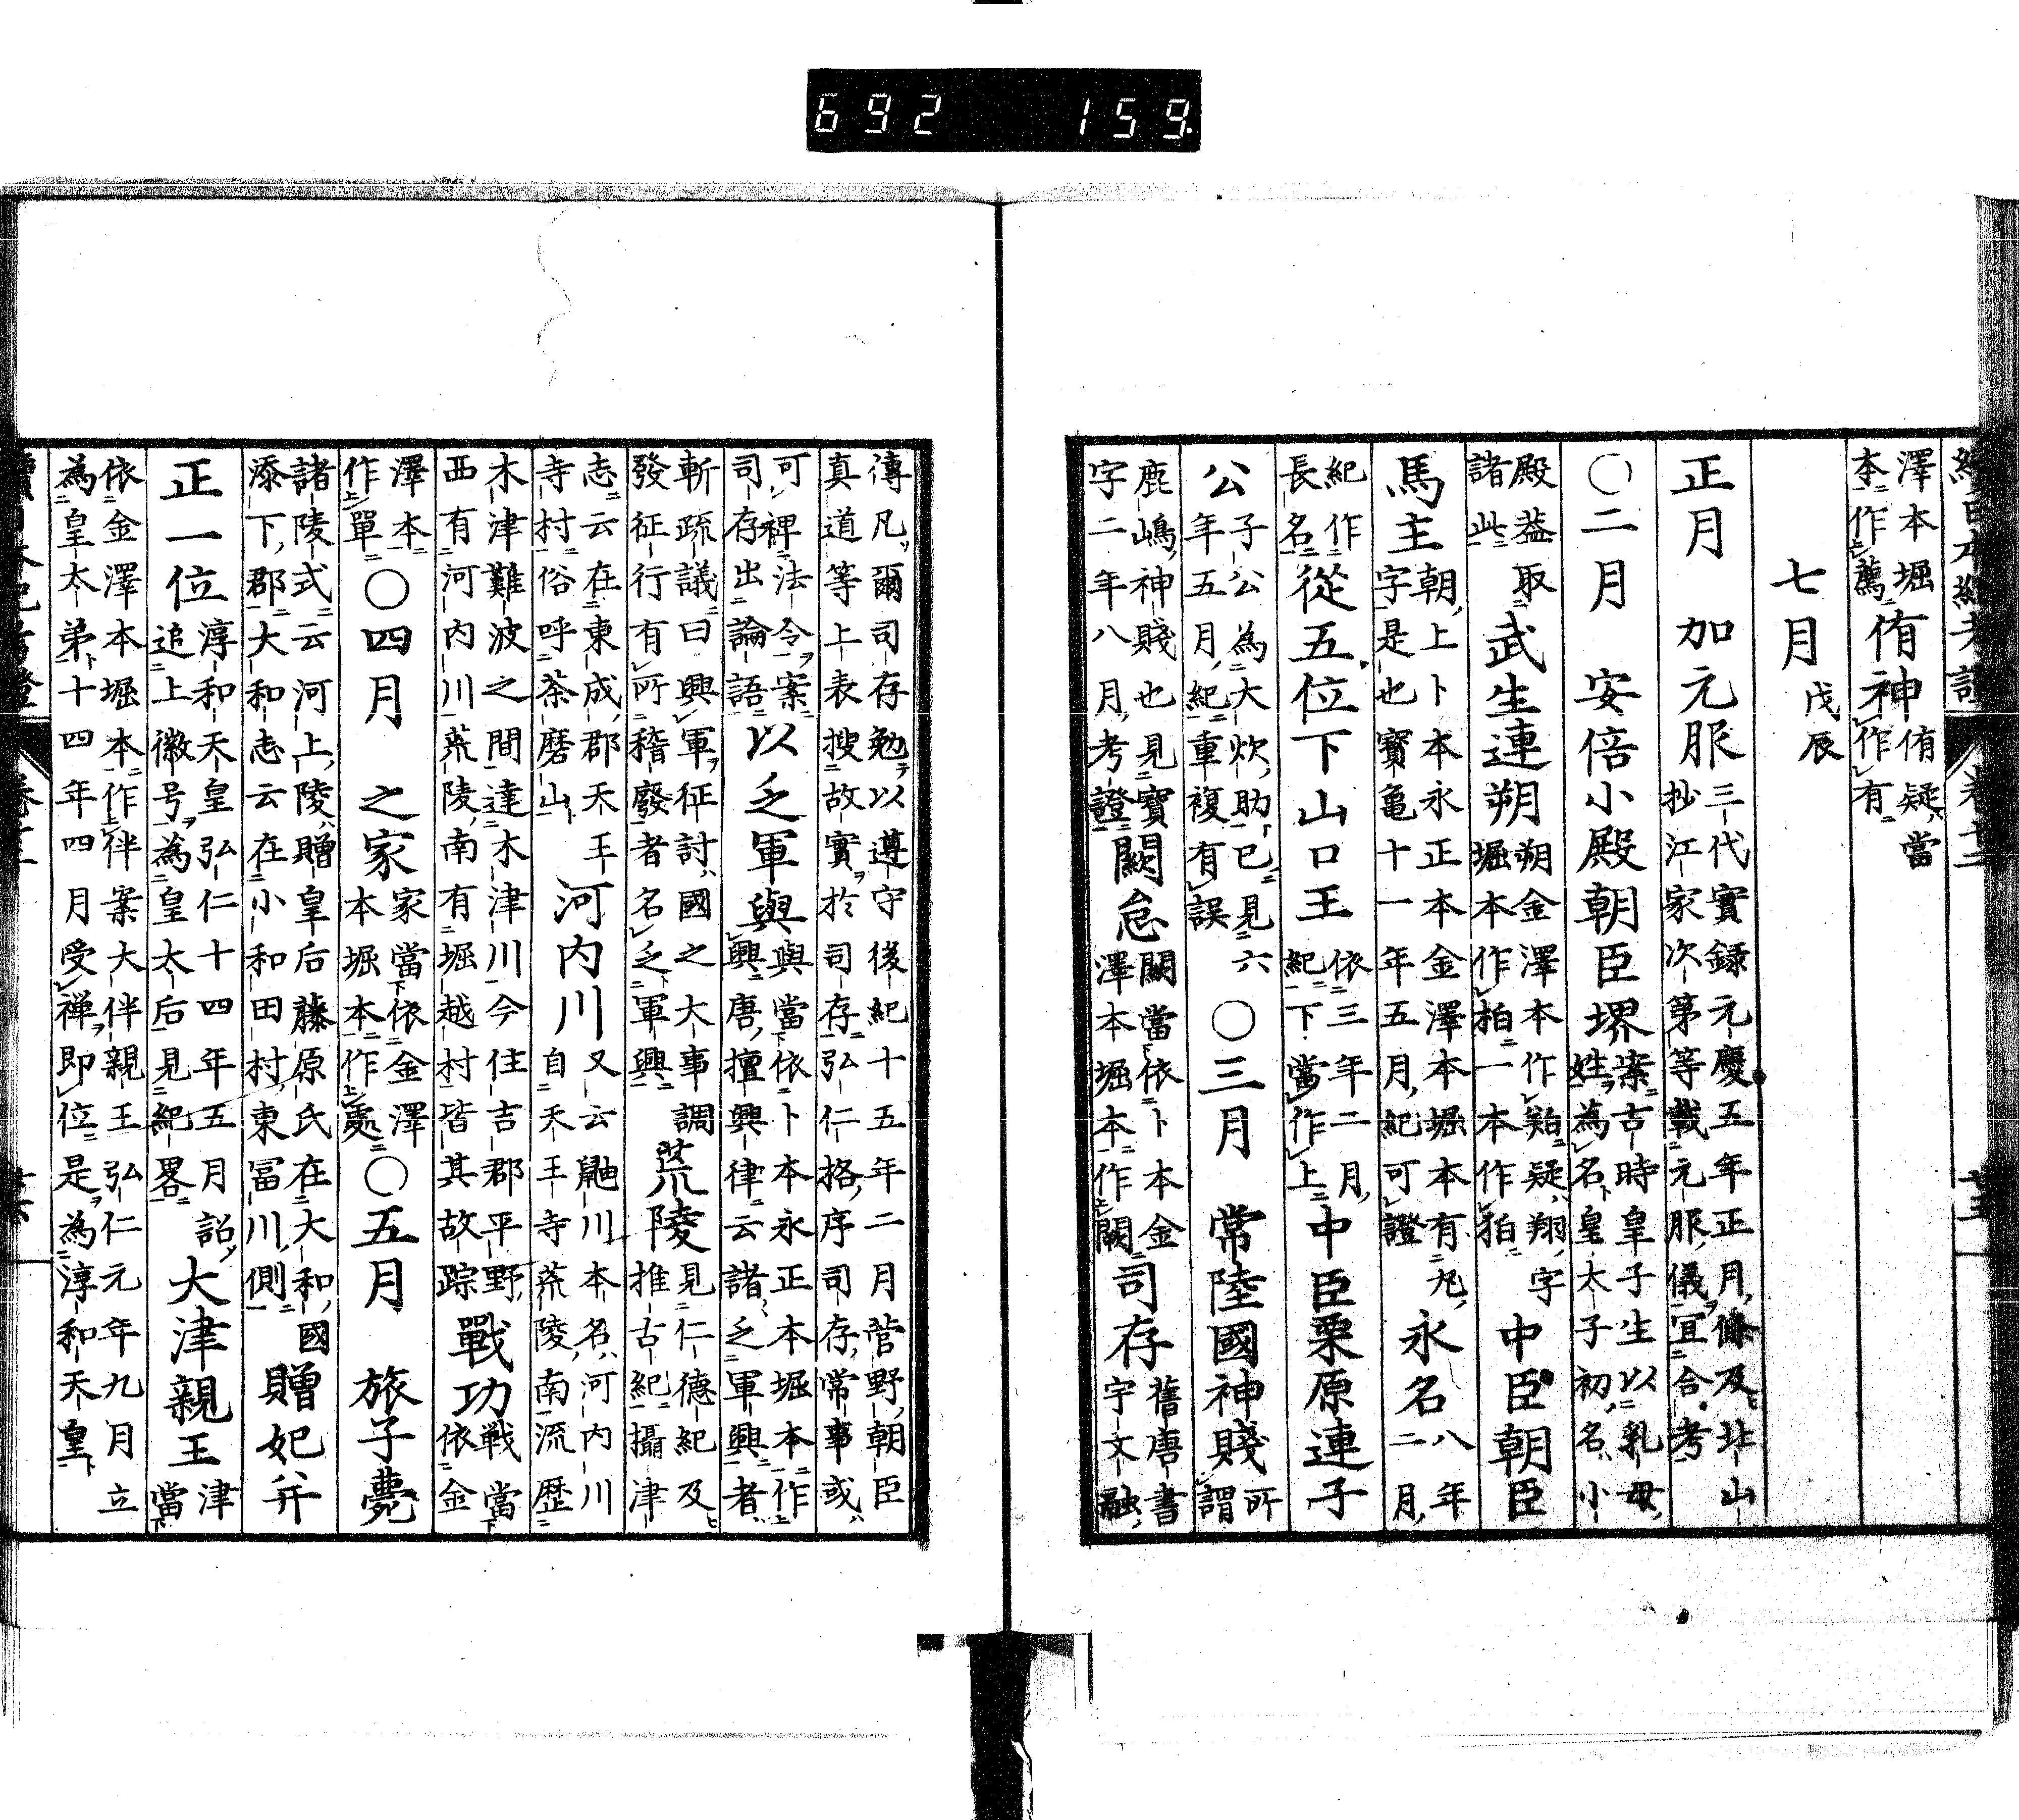 692 159.
續日本紀考證
卷十二
十五
澤本堀
本作薦侑神侑疑當
作有
七月戊辰
正月 加元服三代實録元慶五年正月條及北山
抄江家次第等載元服儀宜合考
〇二月 安倍小殿朝臣堺案古時皇子生以乳母
姓為名皇太子初名小
殿蓋取
諸此武生連朔朔金澤本作疑翔字
堀本作柏一本作狛中臣朝臣
馬主朝上卜本永正本金澤本堀本有
字是也寶亀十一年五月紀可證永名八年
二月
紀作
長名從五位下山口王依三年二月
紀下當作上中臣栗原連子
公子公為大炊助已見六
年五月紀重複有誤〇三月 常陸國神賤所
謂
鹿嶋神賤也見寶
字二年八月考證闕怠闕當依卜本金
澤本堀本作闕司存舊唐書
宇文融
傳凡爾司存勉以遵守後紀十五年二月菅野朝臣
真道等上表搜故實於司存弘仁格序司存常事或
可裨法令案
司存出論語以乏軍與與當依卜本永正本堀本作
興唐擅興律云諸乏軍興者
斬疏議曰興軍征討國之大事調
發征行有所稽廢者名乏軍興荒陵見仁德紀及
推古紀攝津
志云在東成郡天王
寺村俗呼茶磨山河内川又云鼬川本名河内川
自天王寺荒陵南流歴
木津難波之間達木津川今住吉郡平野
西有河内川荒陵南有堀越村皆其故踪戰功戦當
依金
澤本
作單〇四月 之家家當依金澤
本堀本作處〇五月 旅子薨
諸陵式云河上陵贈皇后藤原氏在大和國
添下郡大和志云在小和田村東冨川側贈妃幷
正一位淳和天皇弘仁十四年五月詔
追上徽号為皇太后見紀畧大津親王津
當
依金澤本堀本作伴案大伴親王弘仁元年九月立
為皇太弟十四年四月受禅即位是為淳和天皇